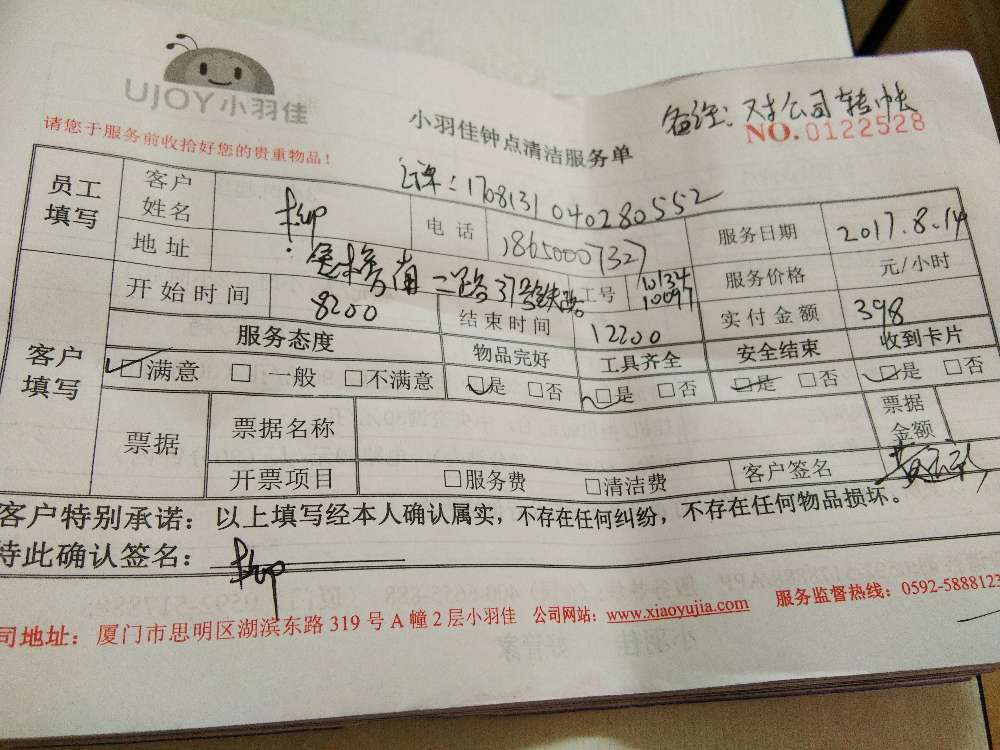 UJOY小羽佳
备注：对公司转帐
小羽佳钟点清洁服务单
NO.0122528
请您于服务前收拾好您的贵重物品！
订单：170813104028 0552
员工填写 客户姓名 电话 18650007327 服务日期 2017.8.14
地址 南二路37号 工号 10134 10097 服务价格 元/小时
开始时间 8200 结束时间 12200 实付金额 398
客户填写 服务态度 物品完好 工具齐全 安全结束 收到卡片
□满意 □一般 □不满意 □是 □否 □是 □否 □是 □否 □是 □否
票据 票据名称 票据金额
开票项目 □服务费 □清洁费 客户签名
客户特别承诺：以上填写经本人确认属实，不存在任何纠纷，不存在任何物品损坏。
特此确认签名：
司地址：厦门市思明区湖滨东路319号A幢2层小羽佳 公司网站：www.xiaoyujia.com 服务监督热线：0592-5888123